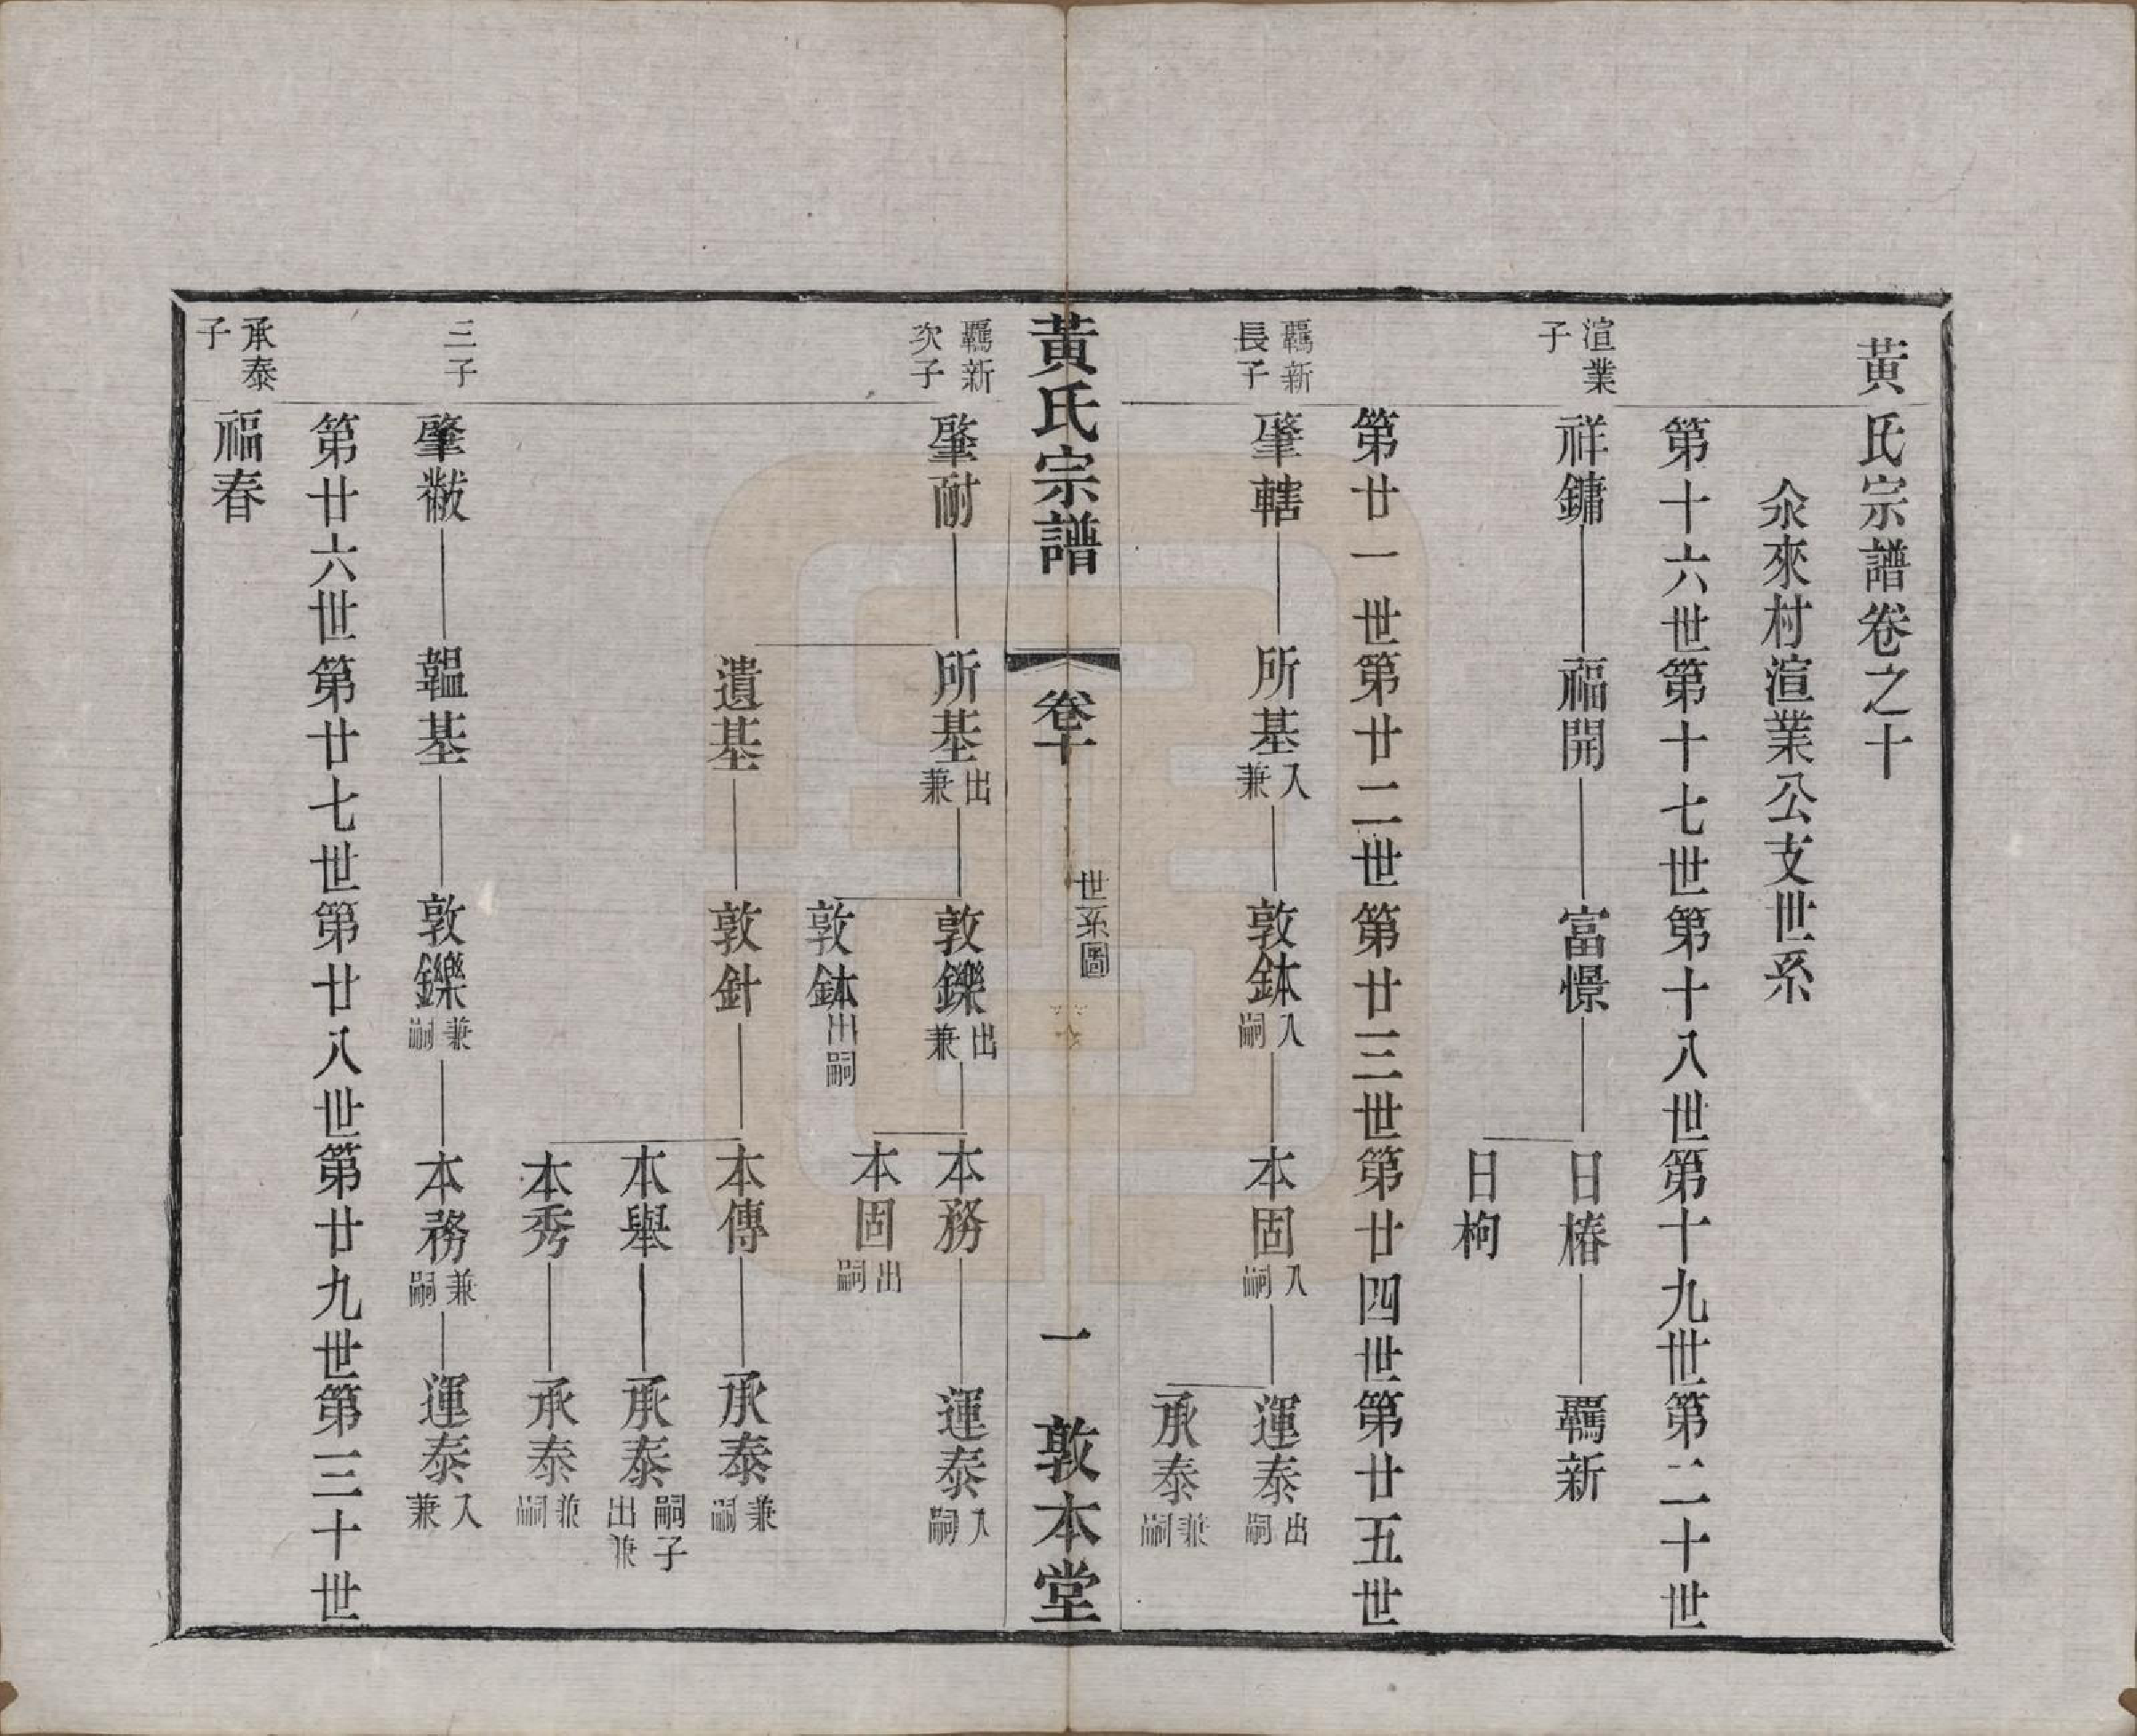 黃氏宗譜卷之十
汆來村渲業公支世系
第十六世第十七世第十八世第十九世第二十世
渲業子
祥鏞 福開 富憬 日椿 羈新
日枸
第廿一世第廿二世第廿三世第廿四世第廿五世
羈新長子
肇轄 所基入兼 敦鉢入嗣 本固入嗣 運泰出嗣
承泰兼嗣
黃氏宗譜 卷十 世系圖 一 敦本堂
羈新次子
肇耐 所基出兼 敦鑠出兼 本務 運泰入嗣
本固出嗣
敦鉢出嗣
遺基 敦針 本傳 承泰兼嗣
本舉 承泰嗣子出兼
本秀 承泰兼嗣
三子
肇黻 韞基 敦鑠兼嗣 本務兼嗣 運泰入兼
第廿六世第廿七世第廿八世第廿九世第三十世
承泰子
福春